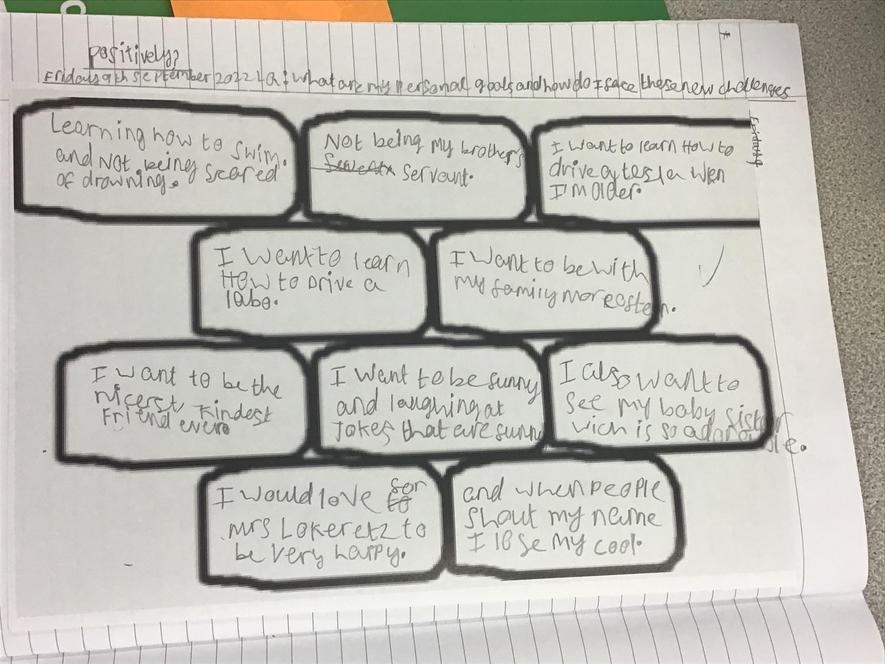 positively?
Friday 9th september 2022 LQ: what are my personal goals and how do I sace these new challenges
Learning how to swim.
and NOT being scared
of drowning.
Not being my brother's
servant.
I want to learn How to
drive a tesla wen
I'm older.
I want to learn
How to Drive a
labo.
I want to be with
my family more osten.
I want to be the
nicerst kindest
Friend ever.
I want to be sunny
and laughing at
Jokes that are sunny
I also want to
see my baby sister
wich is so adorable.
I would love sor
mrs Lokeretz to
be very happy.
and when people
shout my name
I lose my cool.